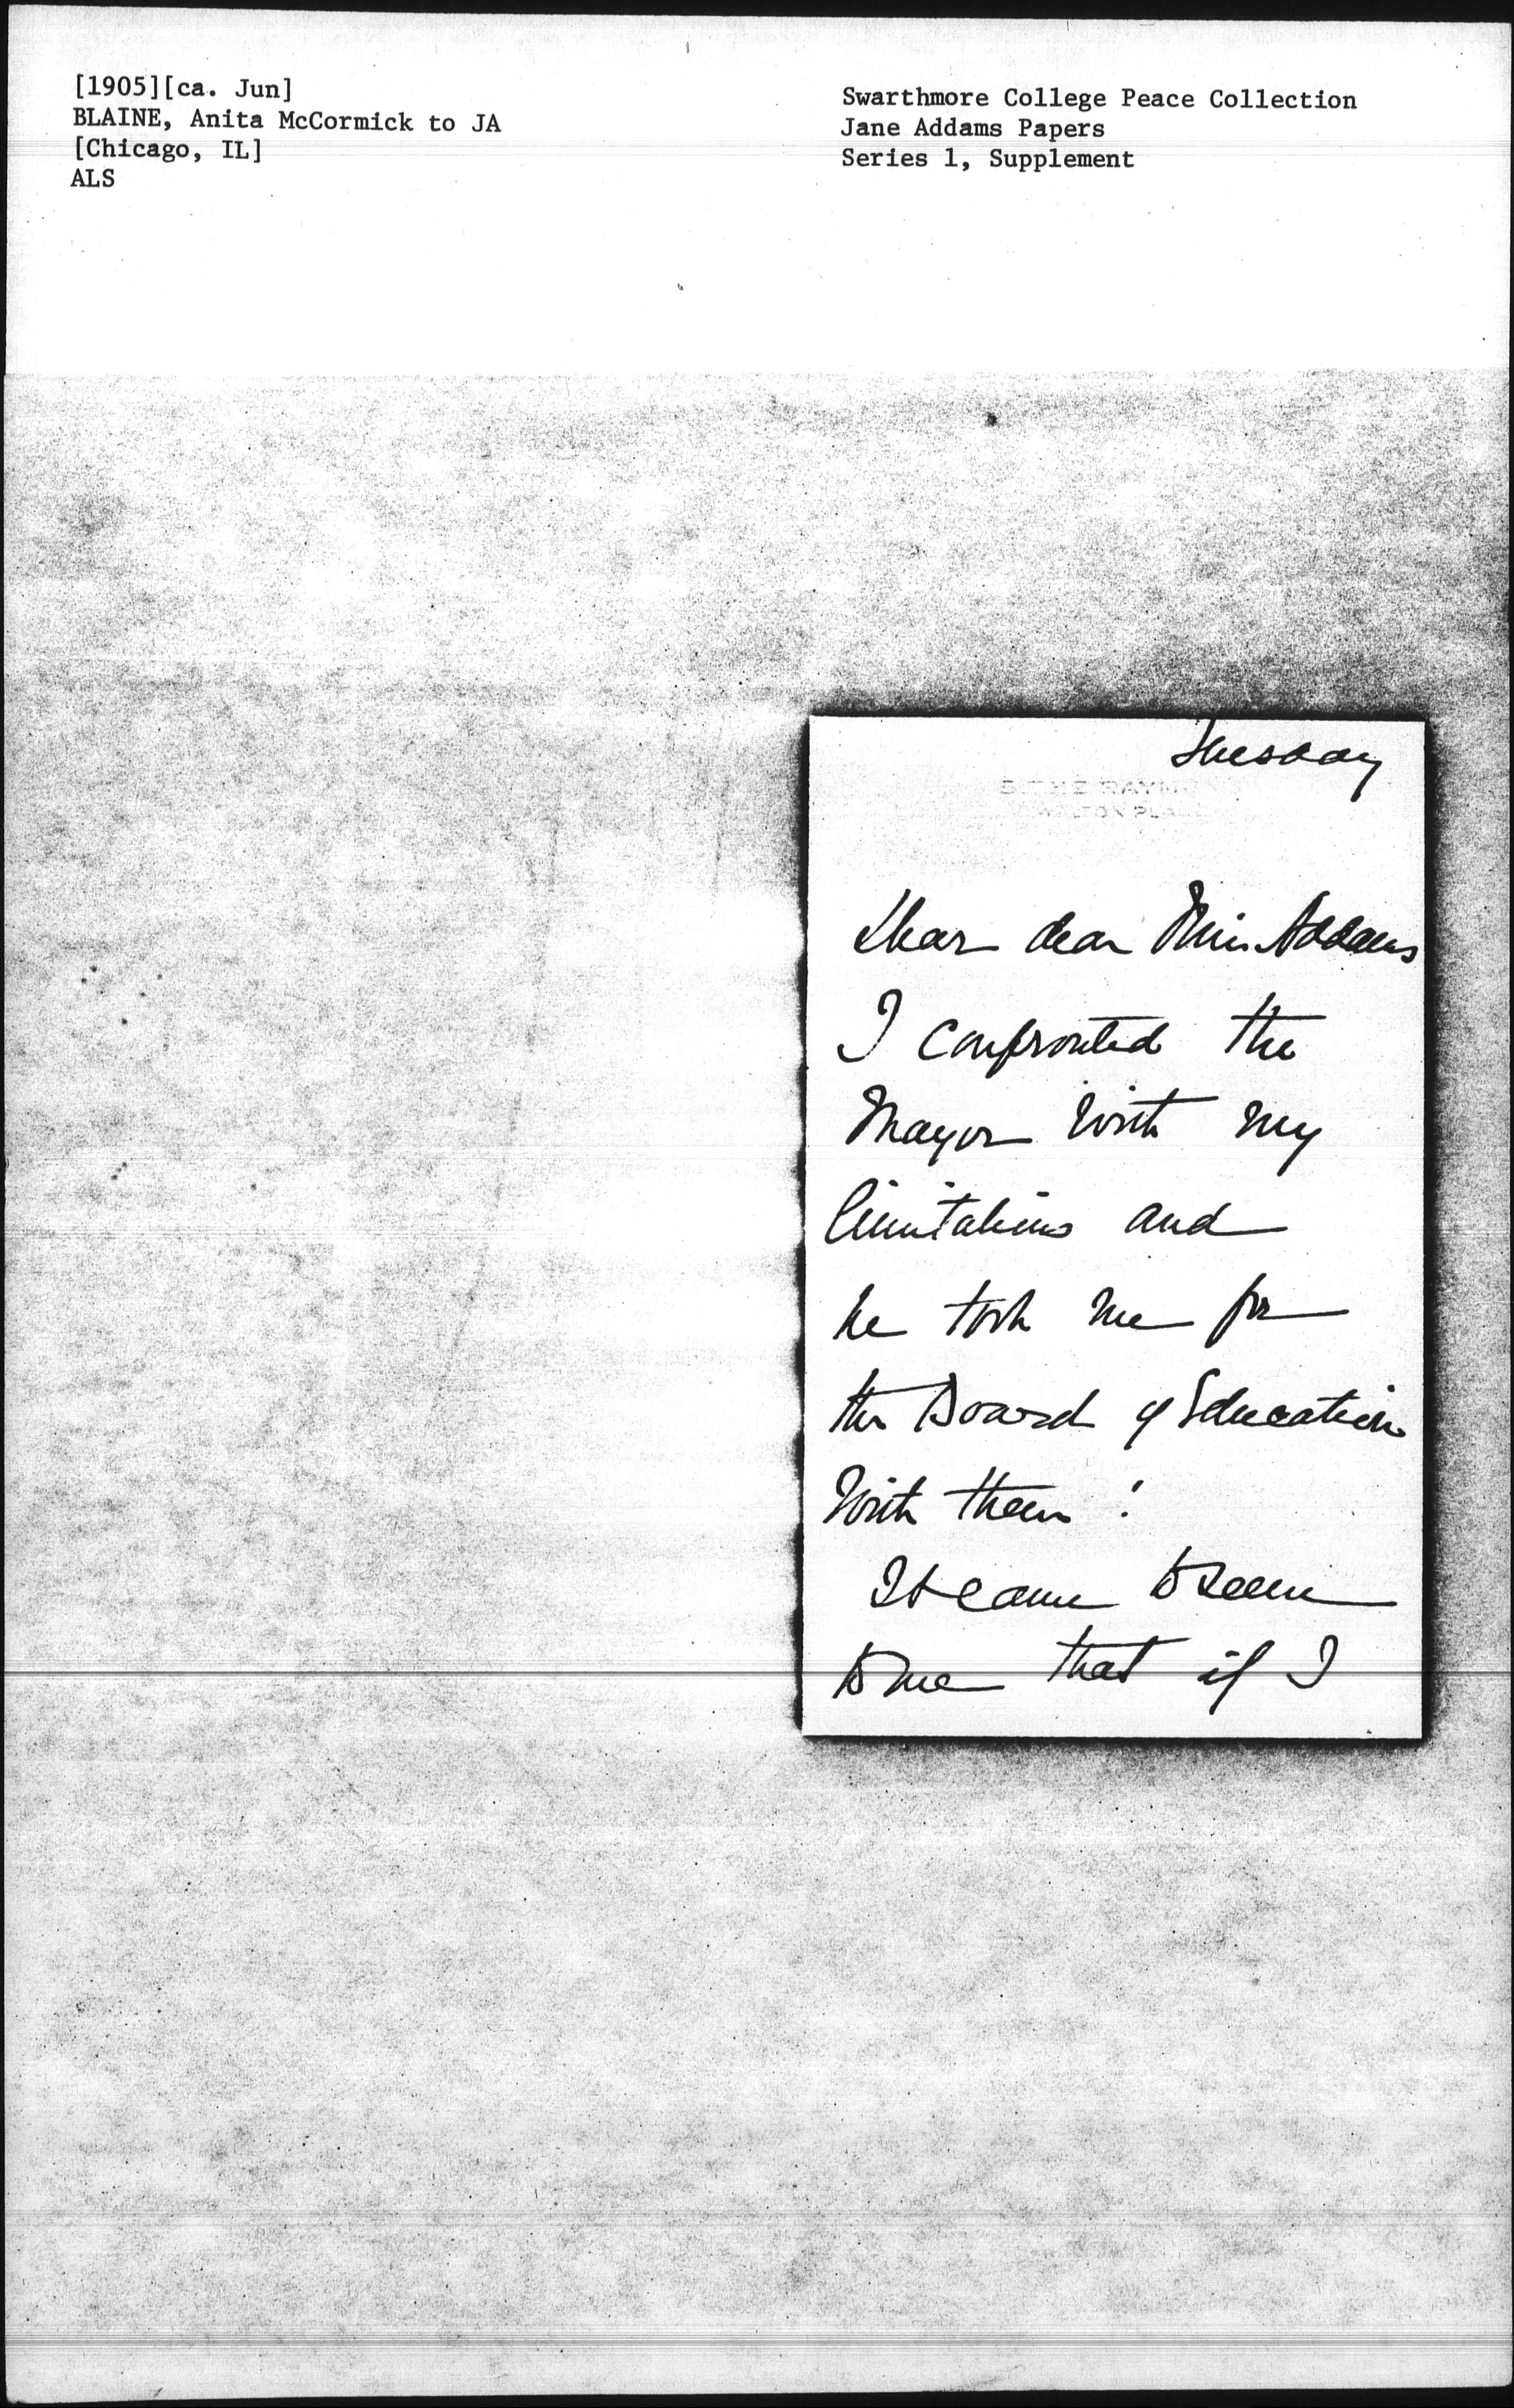 [1905][ca. Jun]
BLAINE, Anita McCormick to JA
[Chicago, IL]
ALS
Swarthmore College Peace Collection
Jane Addams Papers
Series 1, Supplement
Tuesday
Dear dear Miss Addams
I confronted the
Mayor with my
limitations and
he took me for
the Board of Education
with them!
It came to seem
to me that if I